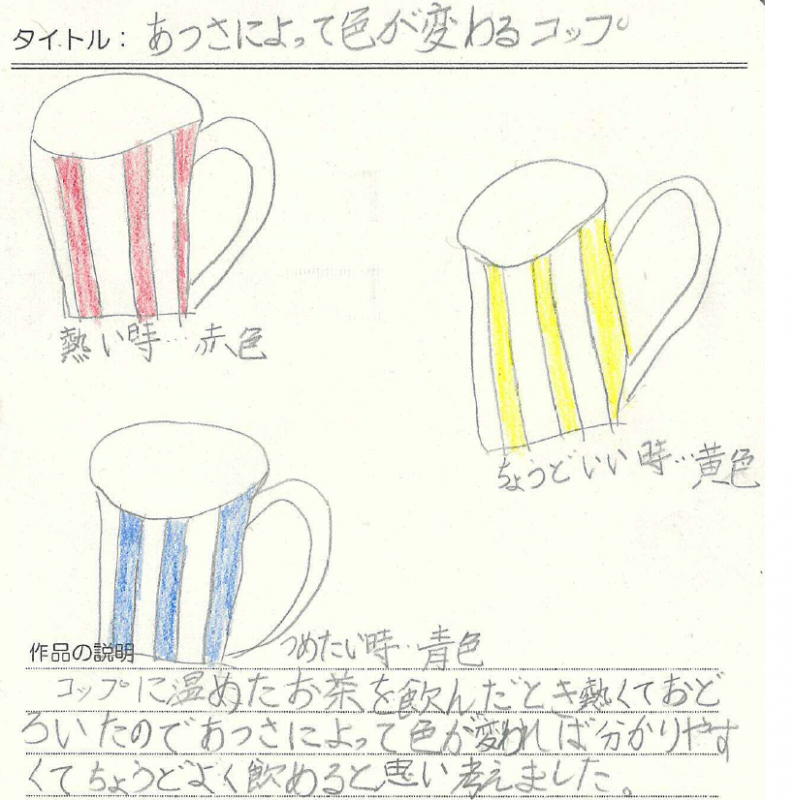 タイトル： あつさによって色が変わるコップ
熱い時…赤色
ちょうどいい時…黄色
つめたい時…青色
作品の説明
コップに温めたお茶を飲んだとき熱くておど
ろいたのであつさによって色が変われば分かりやす
くてちょうどよく飲めると思い考えました。